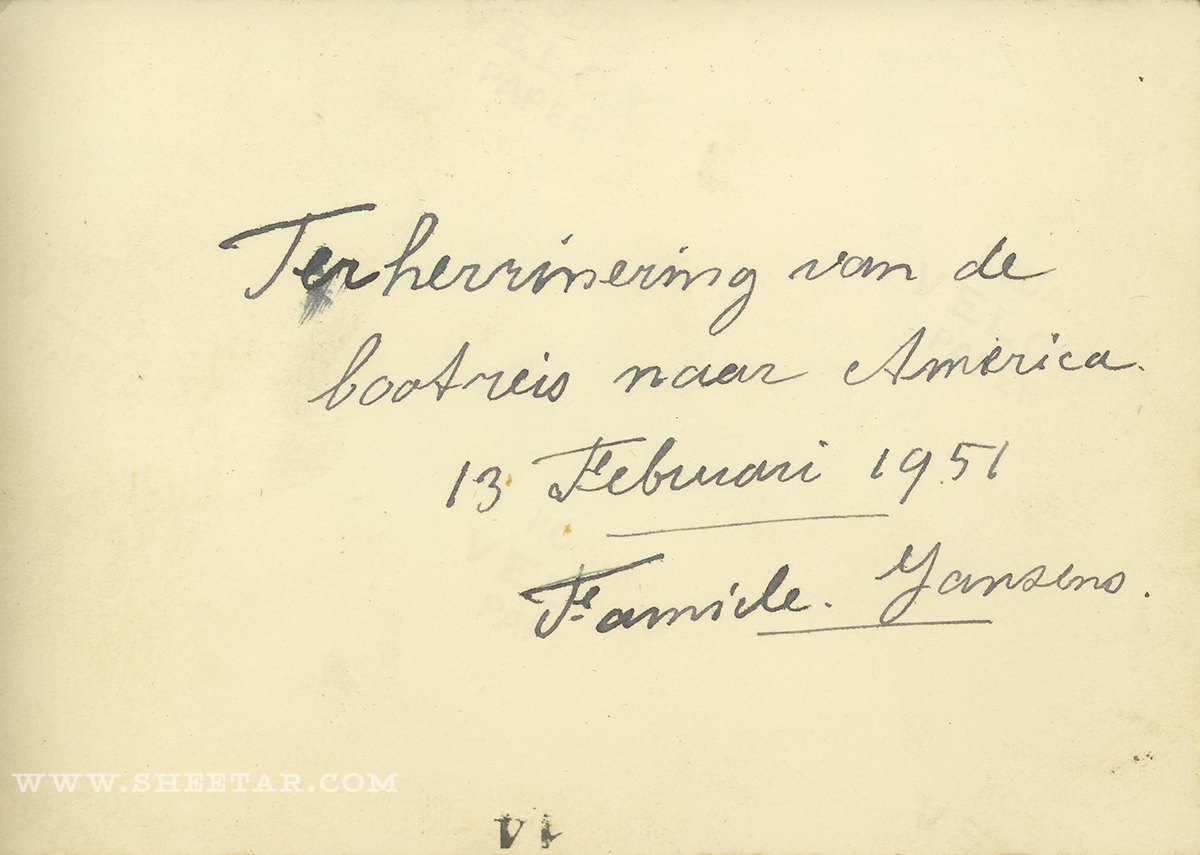 Terherrinering van de
bootreis naar America.
13 Februari 1951
Famile. Jansens.
WWW.SHEETAR.COM